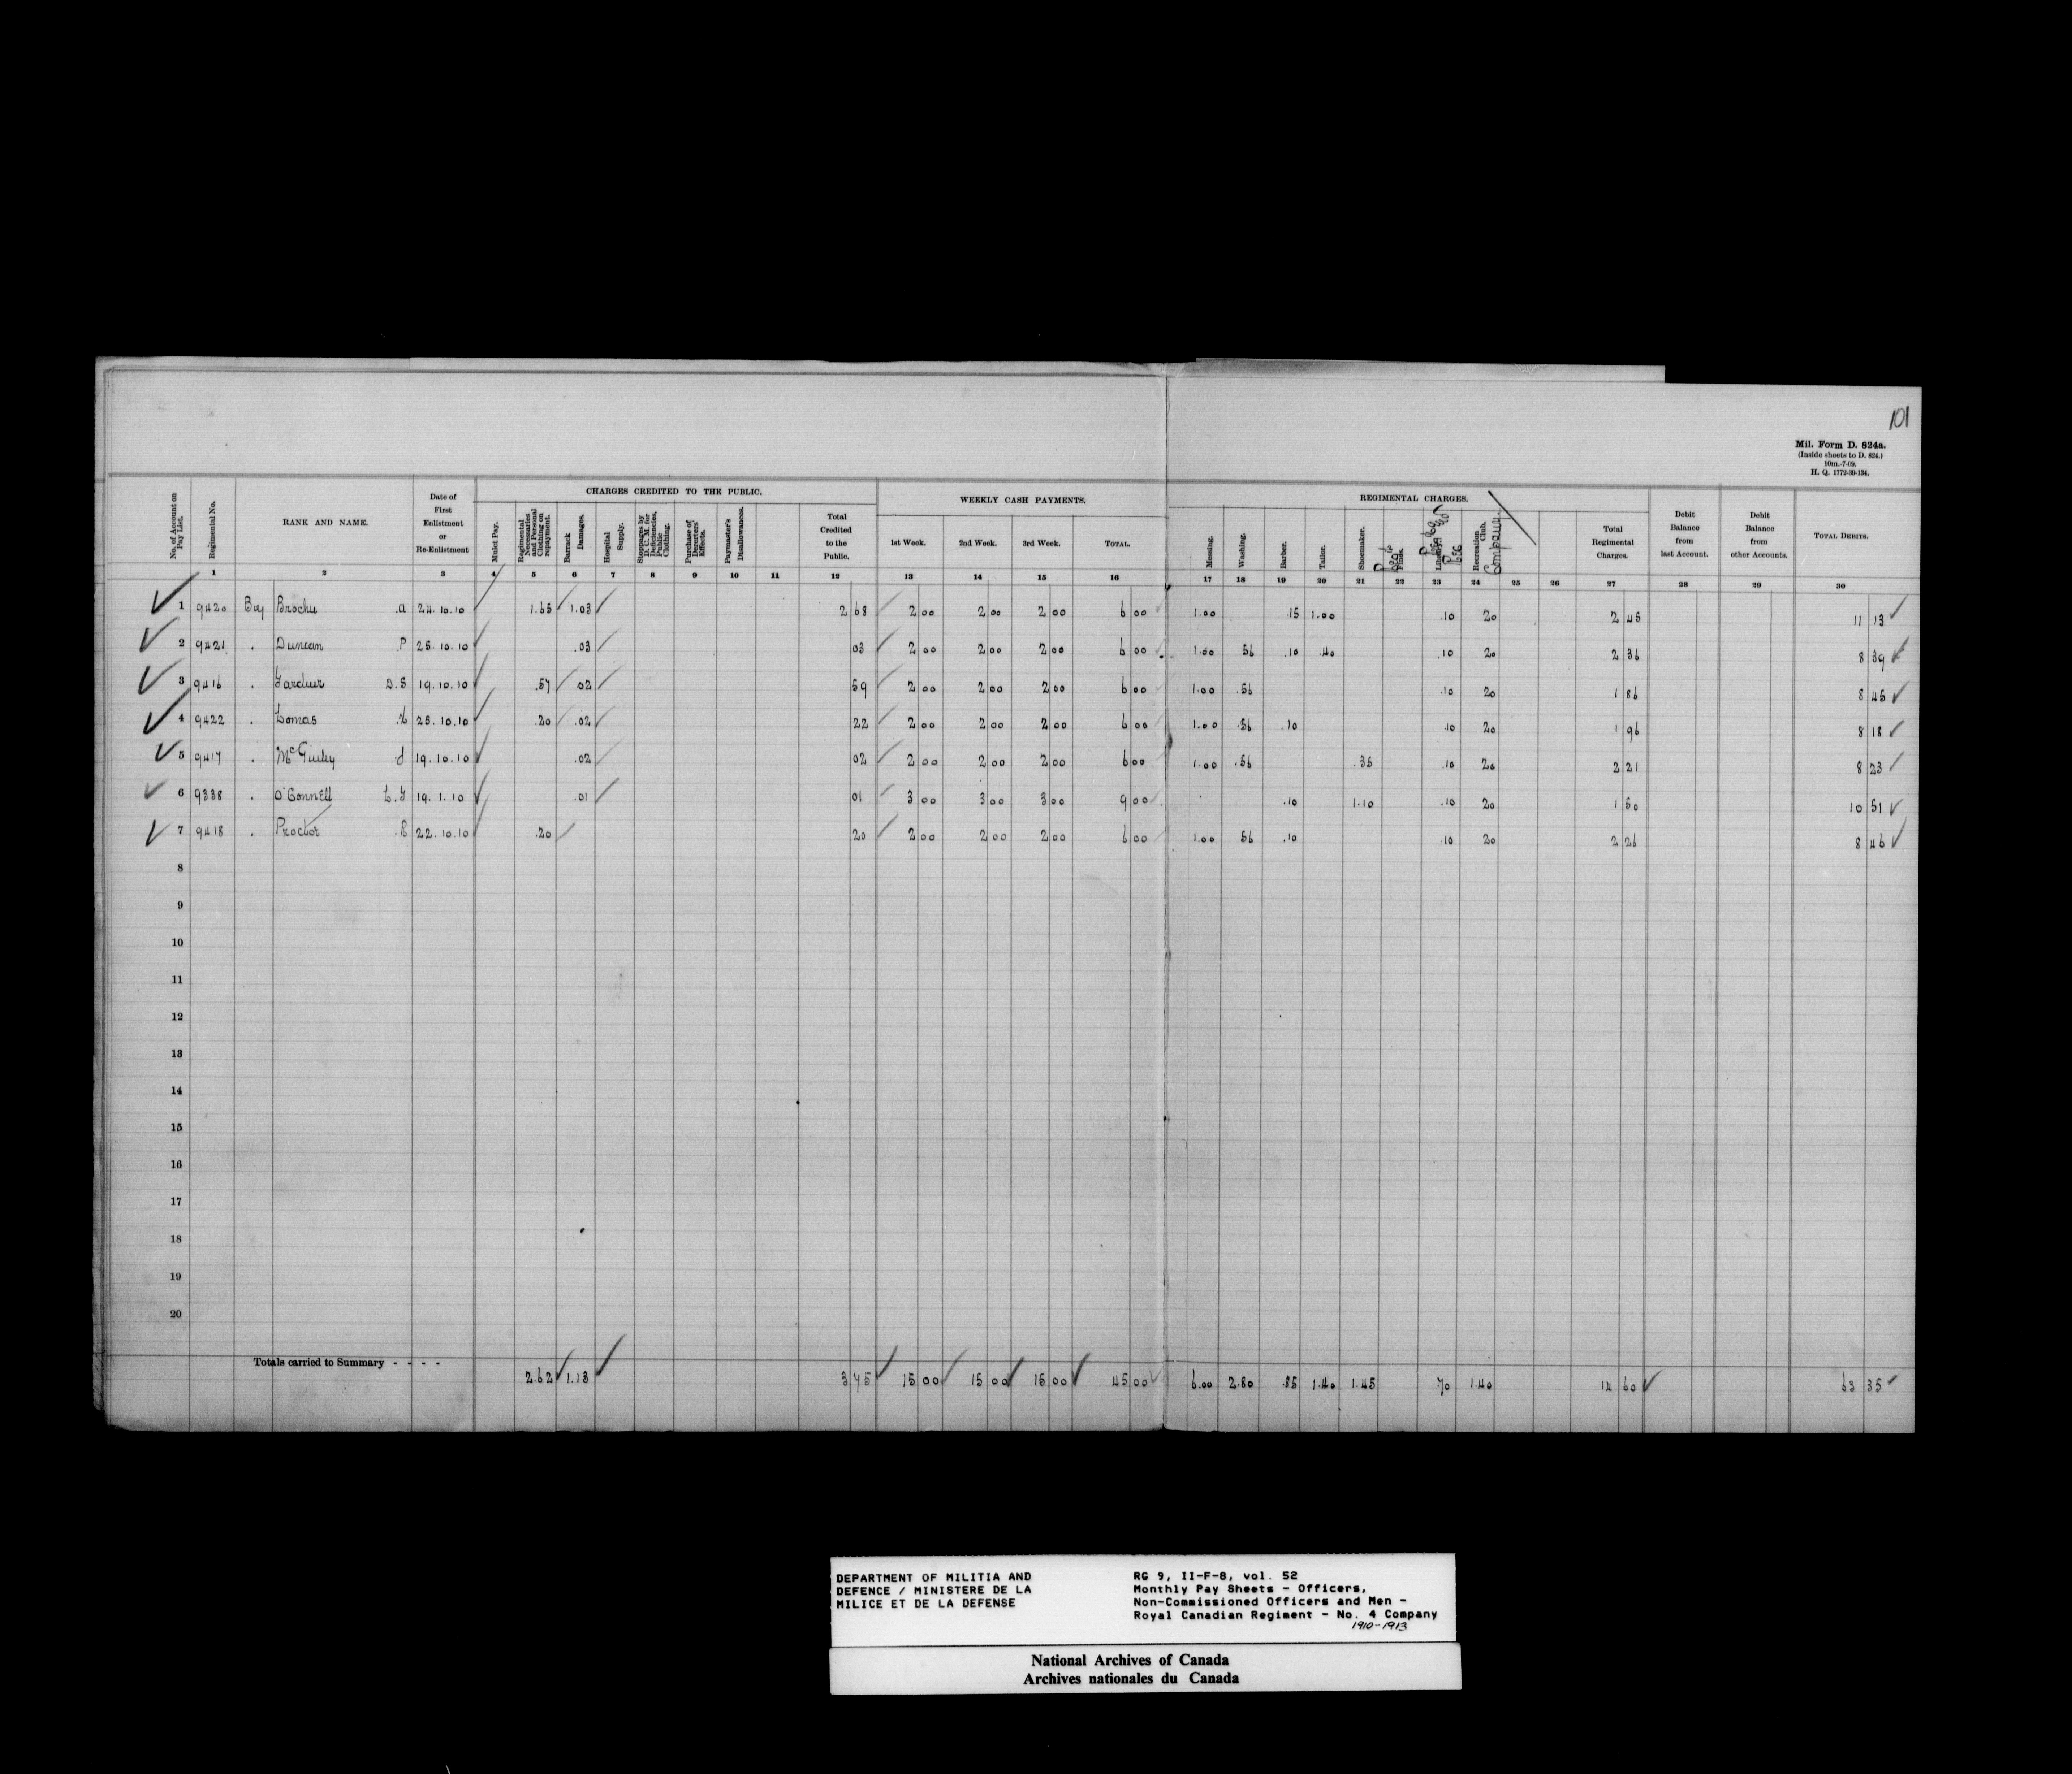 101
Mil. Form D. 824a.
(Inside sheets to D. 824.)
10m.-7-09.
H. Q. 1772-39-134.
CHARGES CREDITED TO THE PUBLIC. WEEKLY CASH PAYMENTS. REGIMENTAL CHARGES.
No. of Account on Pay List. Regimental No. RANK AND NAME. Date of First Enlistment or Re-Enlistment Mulct Pay. Regimental Necessaries and Personal Clothing on repayment. Barrack Damages. Hospital Supply. Stoppages by D. C. M. for Deficiencies, Public Clothing. Purchase of Deserters' Effects. Paymaster's Disallowances. Total Credited to the Public. 1st Week. 2nd Week. 3rd Week. TOTAL. Messing. Washing. Barber. Tailor. Shoemaker. Fines. Library. Recreation Club. Company. Total Regimental Charges. Debit Balance from last Account. Debit Balance from other Accounts. TOTAL DEBITS.
1 2 3 4 5 6 7 8 9 10 11 12 13 14 15 16 17 18 19 20 21 22 23 24 25 26 27 28 29 30
1 9420 Boy Brochu A 24.10.10 1.65 1.03 2 68 2 00 2 00 2 00 6 00 1.00 .15 1.00 .10 20 2 45 11 13
2 9421 . Duncan P 25.10.10 .03 03 2 00 2 00 2 00 6 00 1.00 56 .10 .40 .10 20 2 36 8 39
3 9416 . Gardner D.S 19.10.10 .57 02 59 2 00 2 00 2 00 6 00 1.00 .56 .10 20 1 86 8 45
4 9422 . Lomas 25.10.10 .20 .02 22 2 00 2 00 2 00 6 00 1.00 .56 .10 .10 20 1 96 8 18
5 9417 . McGinley J 19.10.10 .02 02 2 00 2 00 2 00 6 00 1.00 .56 .35 .10 20 2 21 8 23
6 9338 . O'Connell 19.1.10 .01 01 3 00 3 00 3 00 9 00 .10 1.10 .10 20 1 50 10 51
7 9418 . Proctor E 22.10.10 .20 20 2 00 2 00 2 00 6 00 1.00 56 .10 .10 20 2 26 8 46
8
9
10
11
12
13
14
15
16
17
18
19
20
Totals carried to Summary - - - - 2.62 1.13 3 75 15 00 15 00 15 00 45 00 6.00 2.80 .55 1.40 1.45 70 1.40 14 60 63 35
DEPARTMENT OF MILITIA AND
DEFENCE / MINISTERE DE LA
MILICE ET DE LA DEFENSE
RG 9, II-F-8, vol. 52
Monthly Pay Sheets - Officers,
Non-Commissioned Officers and Men -
Royal Canadian Regiment - No. 4 Company
1910-1913
National Archives of Canada
Archives nationales du Canada